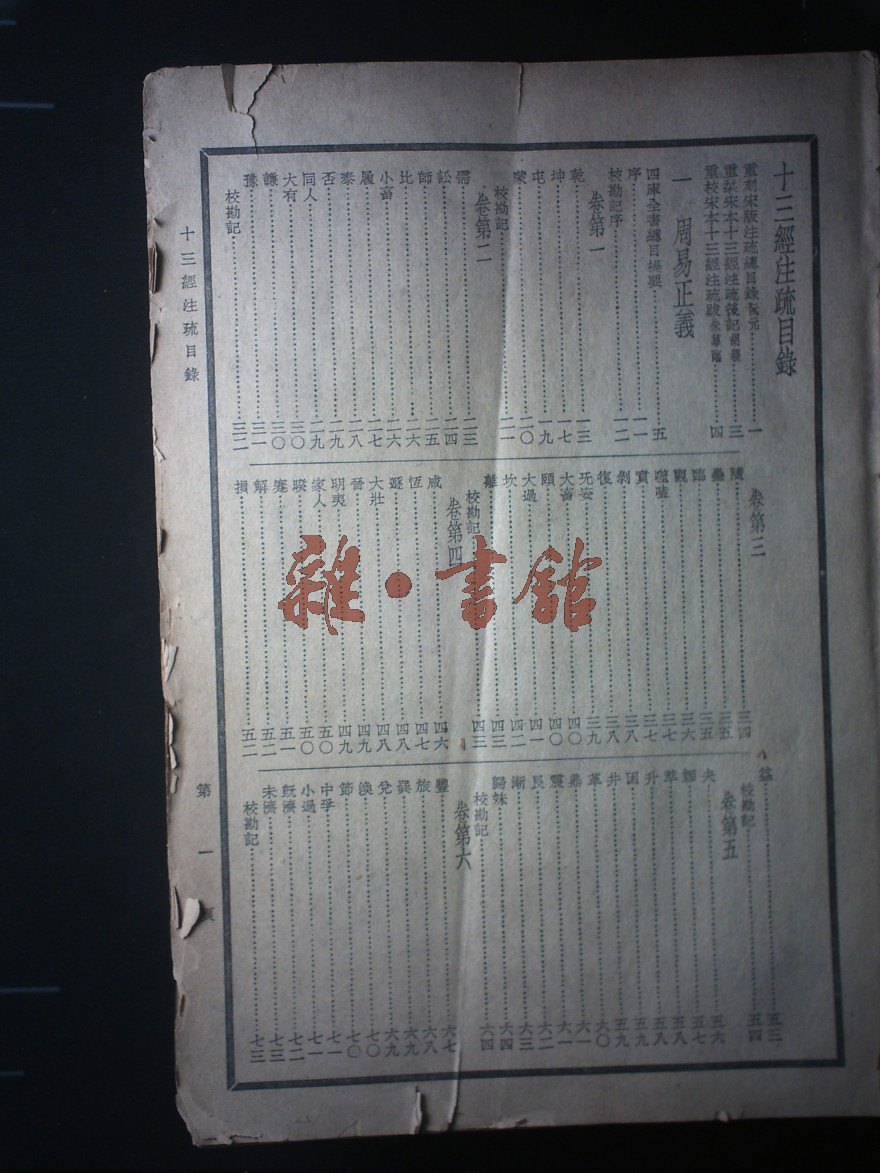 十三經注疏目錄
重刻宋版注疏總目錄阮元……一
重栞宋本十三經注疏後記胡稷……三
重校宋本十三經注疏跋朱華臨……四
一 周易正義
四庫全書總目提要……五
序……一一
校勘記序……一二
卷第一
乾……一三
坤……一七
屯……一九
蒙……二〇
校勘記……二一
卷第二
需……二三
訟……二四
師……二五
比……二六
小畜……二六
履……二七
泰……二八
否……二九
同人……二九
大有……三〇
謙……三〇
豫……三一
校勘記……三二
卷第三
隨……三四
蠱……三五
臨……三五
觀……三六
噬嗑……三七
賁……三七
剝……三八
復……三八
无妄……三九
大畜……四〇
頤……四〇
大過……四一
坎……四二
離……四三
校勘記……四三
卷第四
咸……四六
恆……四七
遯……四八
大壯……四八
晉……四九
明夷……四九
家人……五〇
睽……五〇
蹇……五一
解……五二
損……五二
益……五三
校勘記……五四
卷第五
夬……五六
姤……五七
萃……五八
升……五八
困……五九
井……五九
革……六〇
鼎……六一
震……六一
艮……六二
漸……六三
歸妹……六四
校勘記……六四
卷第六
豐……六七
旅……六八
巽……六九
兌……六九
渙……七〇
節……七〇
中孚……七一
小過……七一
既濟……七二
未濟……七三
校勘記……七三
十三經注疏目錄
第一頁
雜·書館